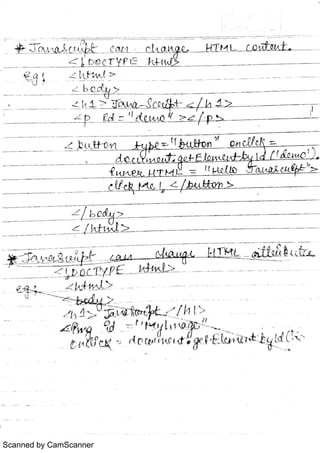 * JavaScript can change HTML content.
<!DOCTYPE html>
eg: <html>
<body>
<h1> Java-Script </h1>
<p id = "demo" ></p>
<button type = "button" onclick =
document.getElementById('demo').
inner HTML = "Hello JavaScript">
click Me!, </button>
</body>
</html>
* JavaScript can change HTML attribute
<!DOCTYPE html>
eg:- <html>
<body>
<h1> JavaScript </h1>
<img id = "MyImage"
onclick = document.getElementById('
Scanned by CamScanner